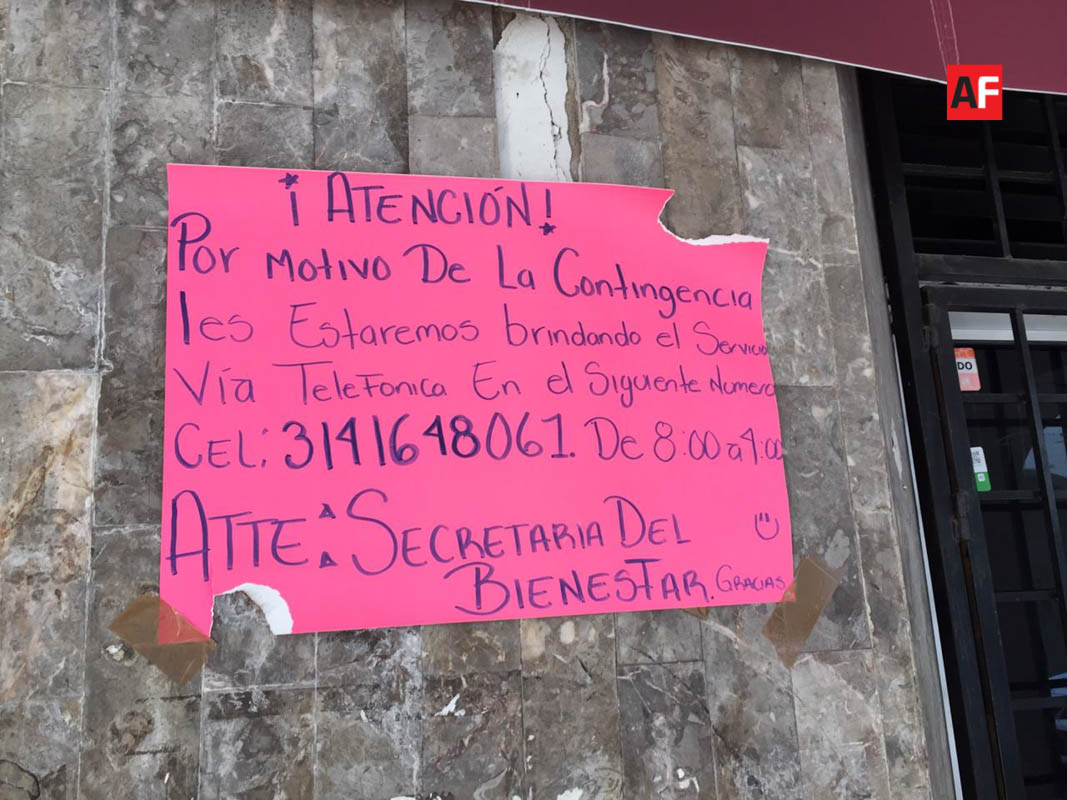 ¡ATENCIÓN!
Por Motivo De La Contingencia
les Estaremos brindando el Servicio
Vía TeleFonica En el Siguiente Numero
CEL: 3141648061. De 8:00 a 4:00
ATTE: SECRETARIA DEL
BIENESTAR. GRACIAS
AF
DO